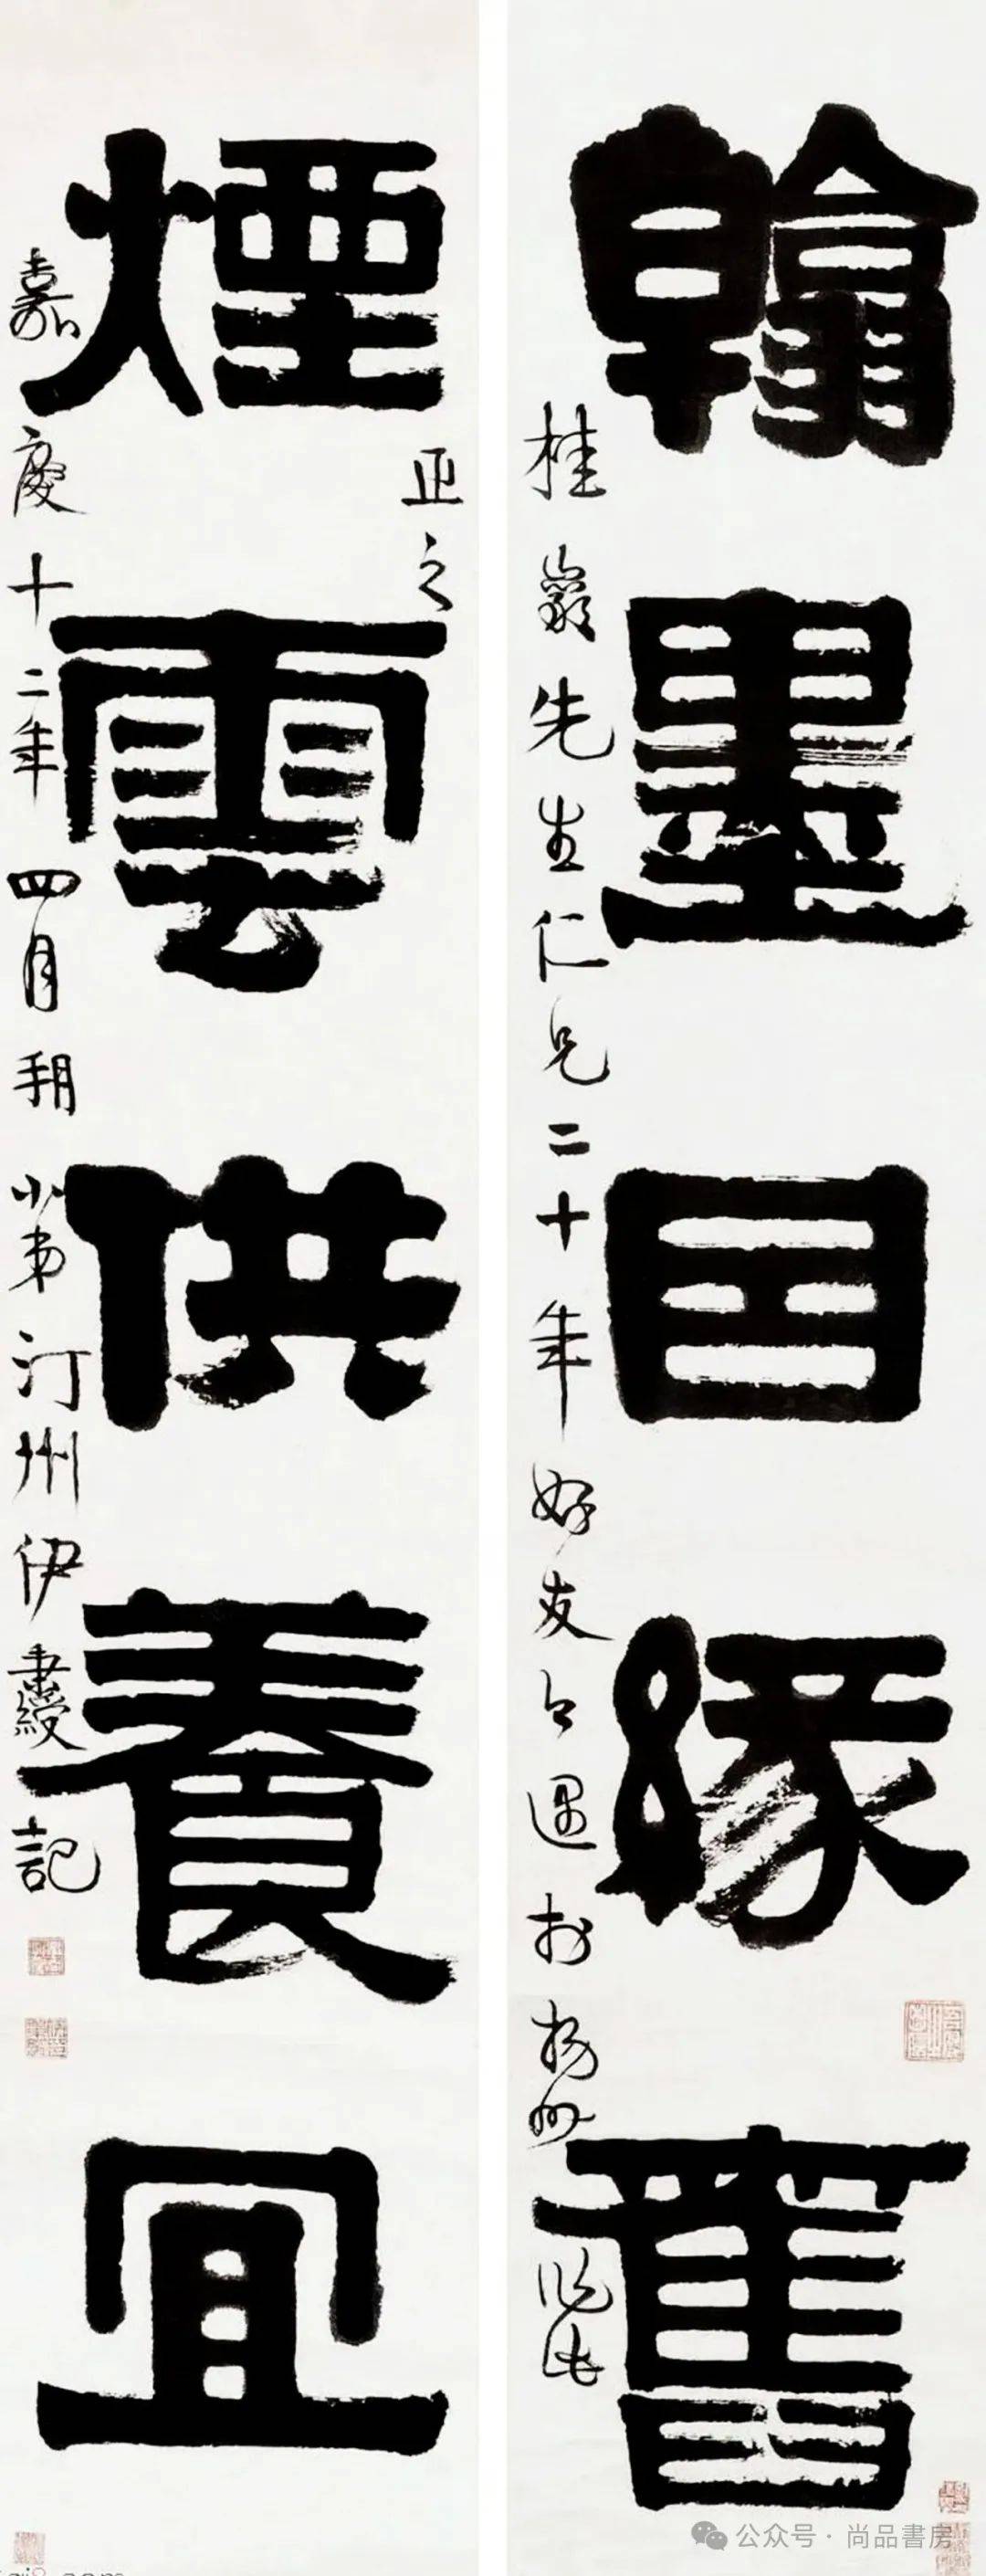 翰墨因緣舊
桂巖先生仁兄二十年好友今遇於揚州作此
煙雲供養宜
正之
嘉慶十二年四月朔小弟汀州伊秉綬記
公众号 · 尚品書房